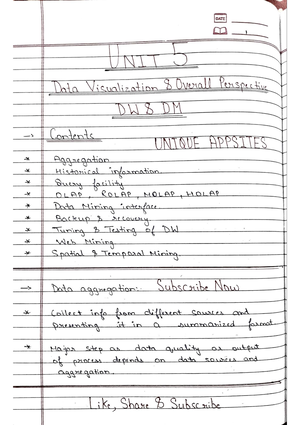 DATE
UNIT 5
Data Visualization & Overall Perspective
DW & DM
→ Contents
UNIQUE APPSITES
* Aggregation
* Historical information
* Query facility
* OLAP, ROLAP, MOLAP, HOLAP
* Data Mining interface
* Backup & recovery
* Tuning & Testing of DW
* Web Mining
* Spatial & Temporal Mining.
→ Data aggregation:- Subscribe Now
* Collect info from different sources and
presenting it in a summarized format
* Major step as data quality as output
of process depends on data sources and
aggregation.
Like, Share & Subscribe